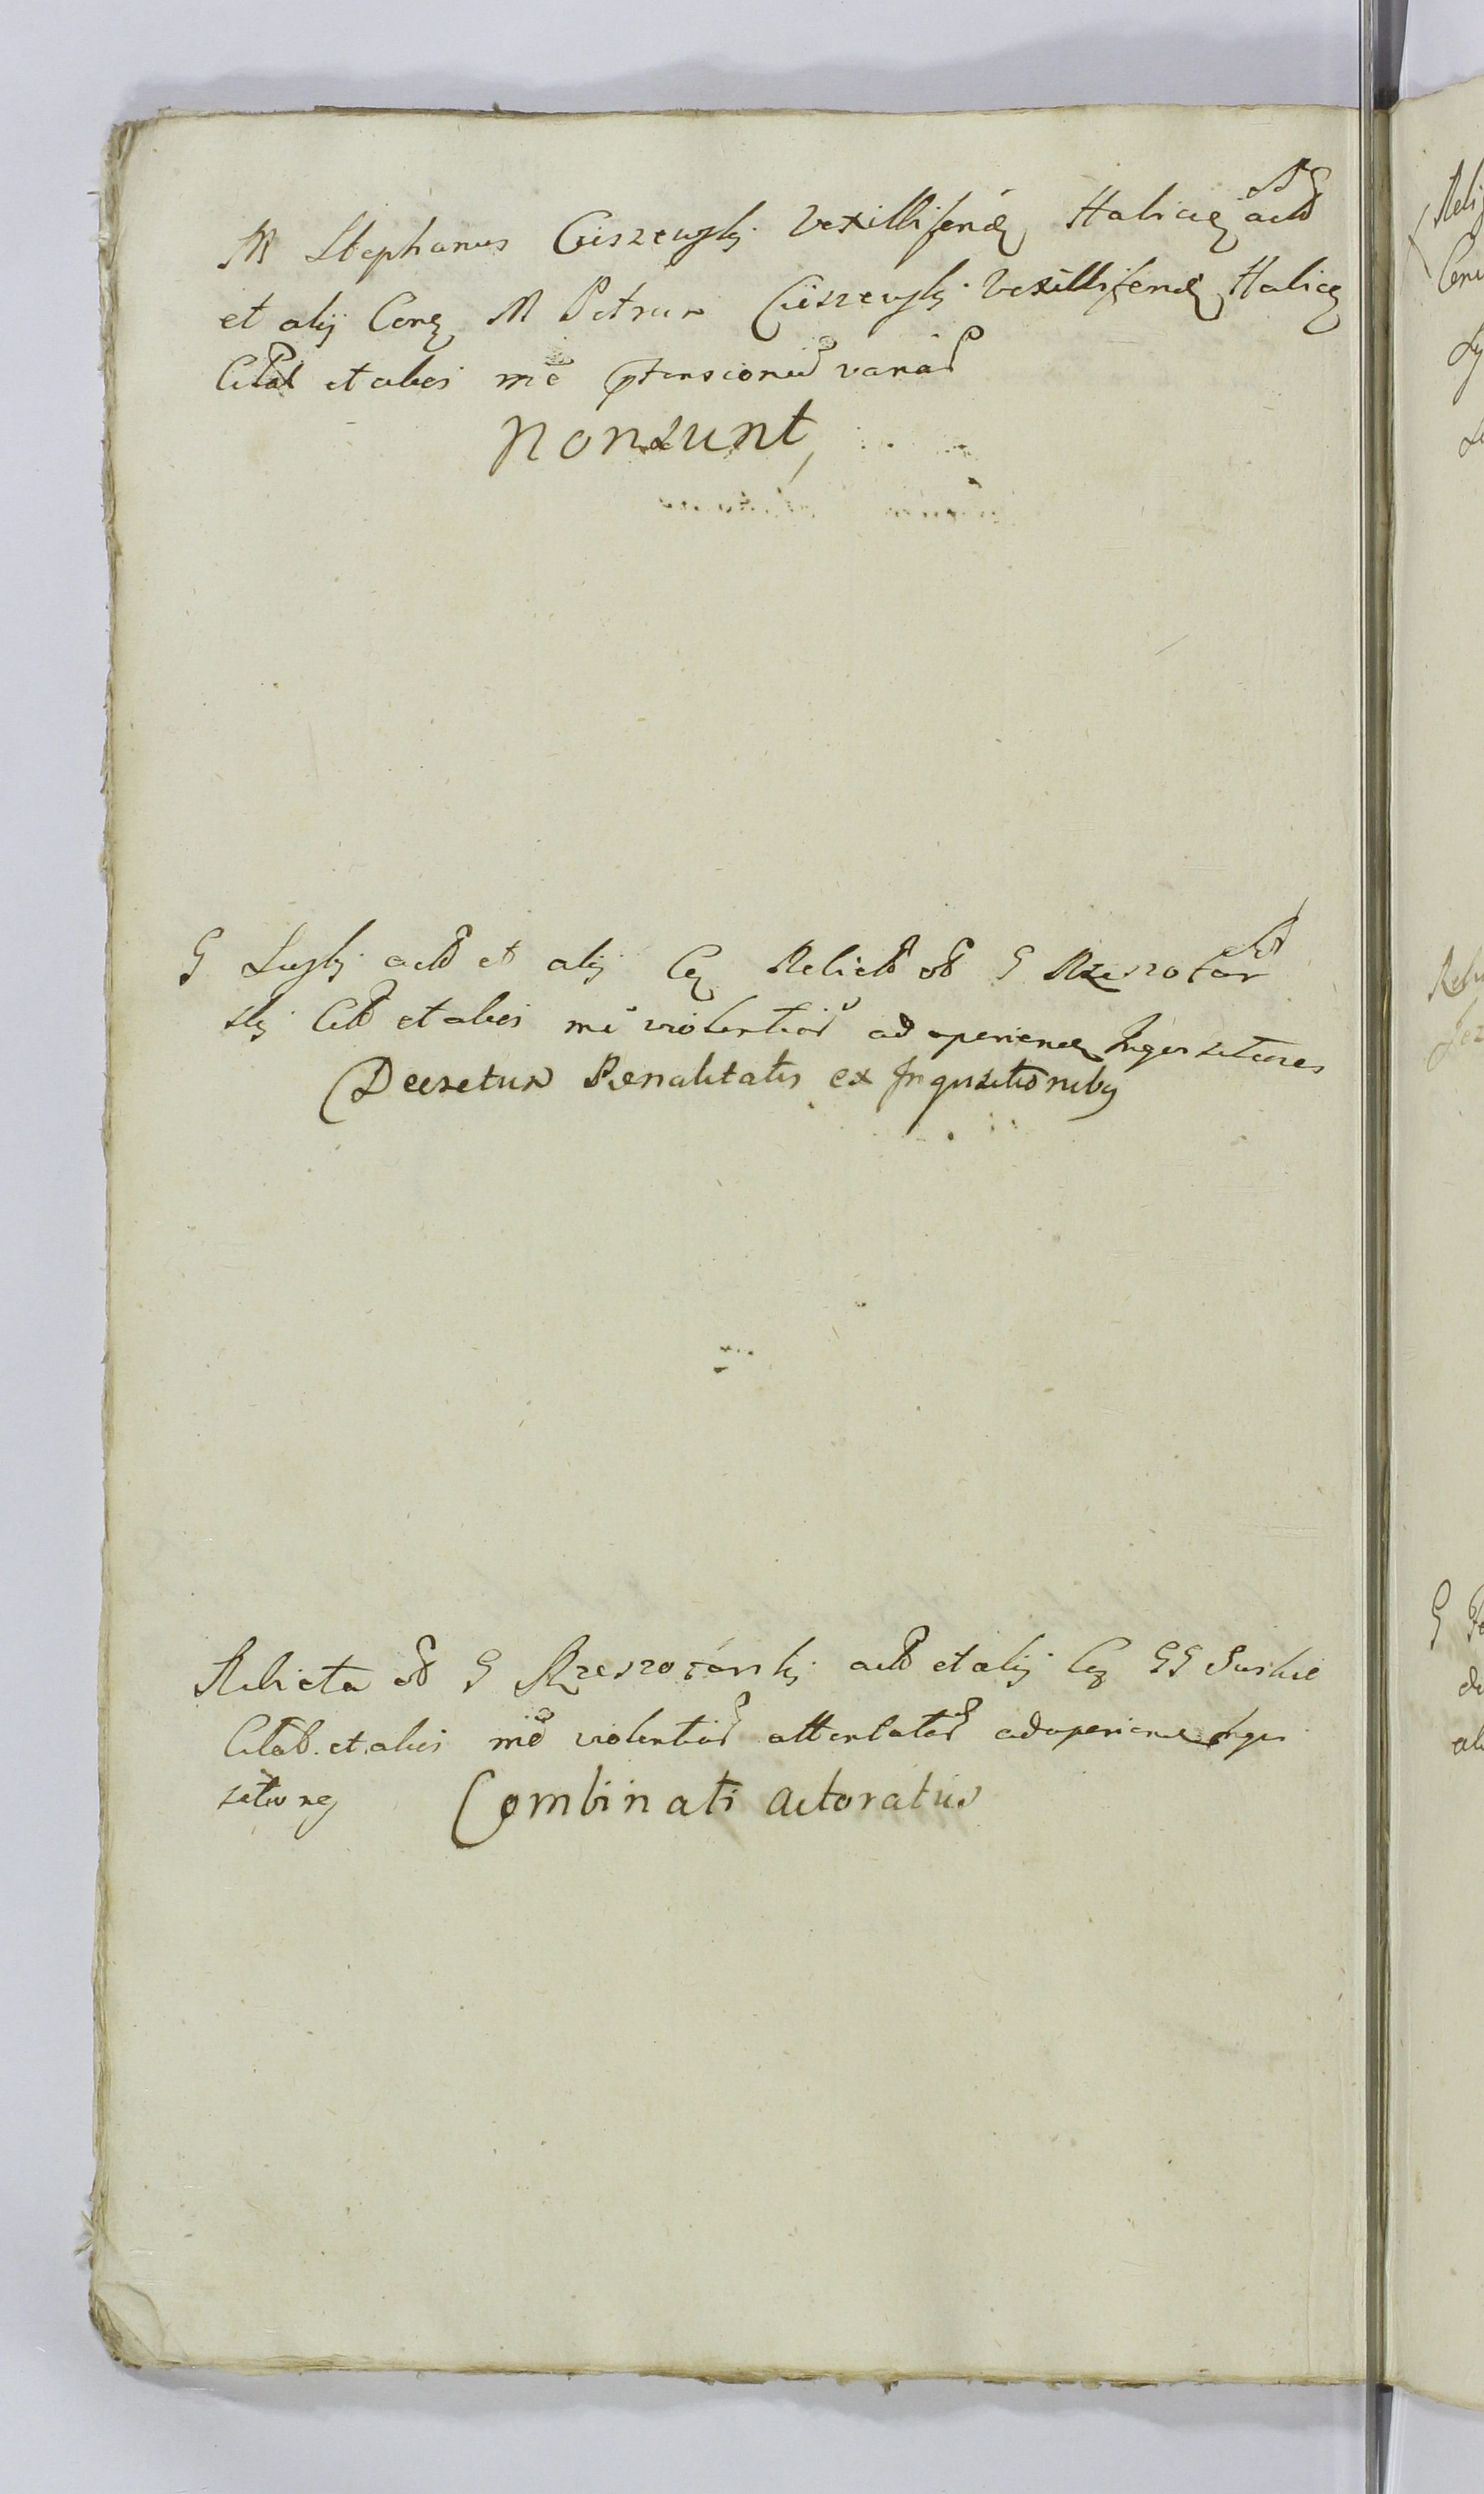 M Stephanus Cieszewski Vexillifer Halicie act
et alij Cong M Petrum Cieszewski Vexillifer Halicie
Citat et alios me ptensioned variad
Nonsunt,
G Suski act et alij Cg Relict ol G Rzeszotar
ski Cit et alios me violentiar adaperiend Inqui sitiones
Decretum Penalitatis ex Inquisitionibg
Relicta ol G Rzeszotarski act et alij Cg GG Suskie
Citat. et alios me violentiar attentatar adaperiend Inqui
sitiong Combinati actoratus